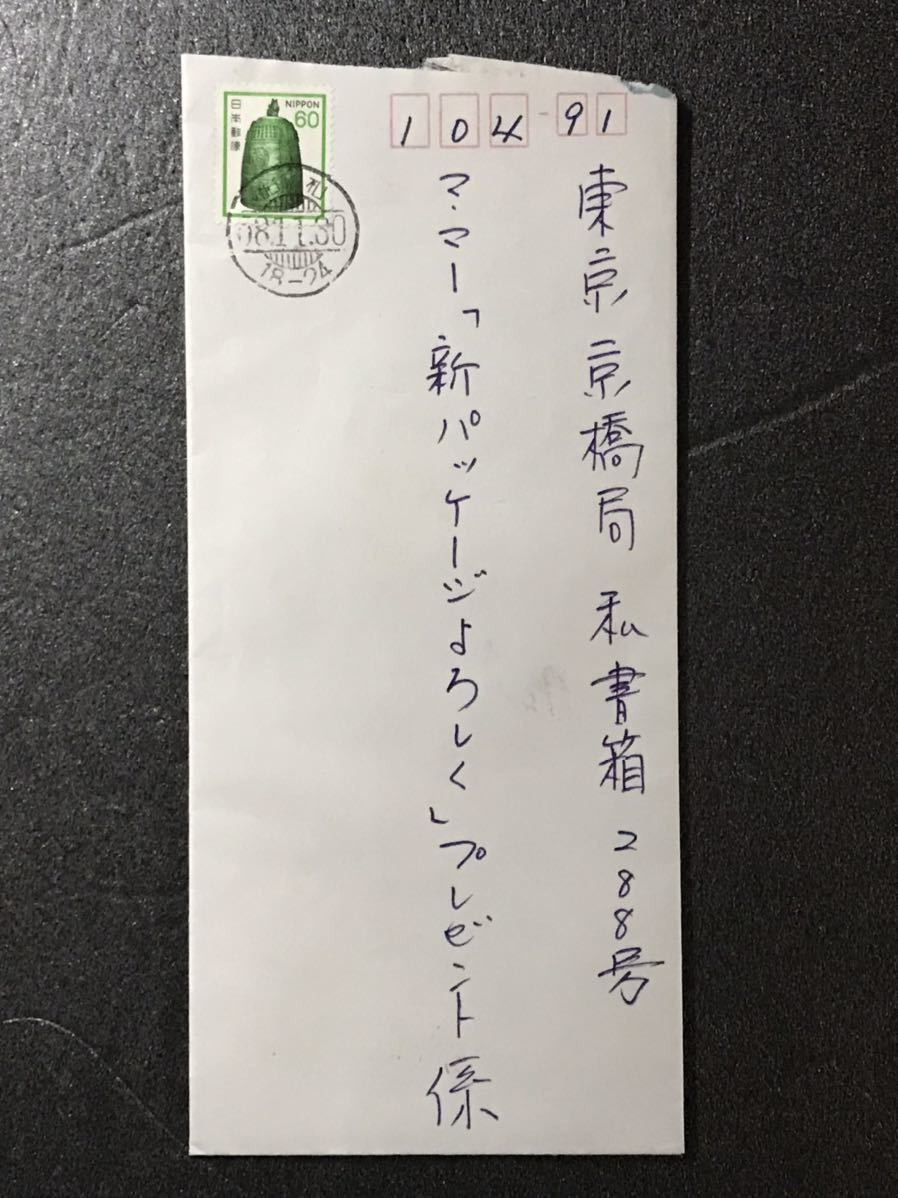 104-91
東京京橋局 私書箱 288号
マ・マー「新パッケージよろしく」プレゼント係
日本郵便
NIPPON
60
札
58.11.30
18-24